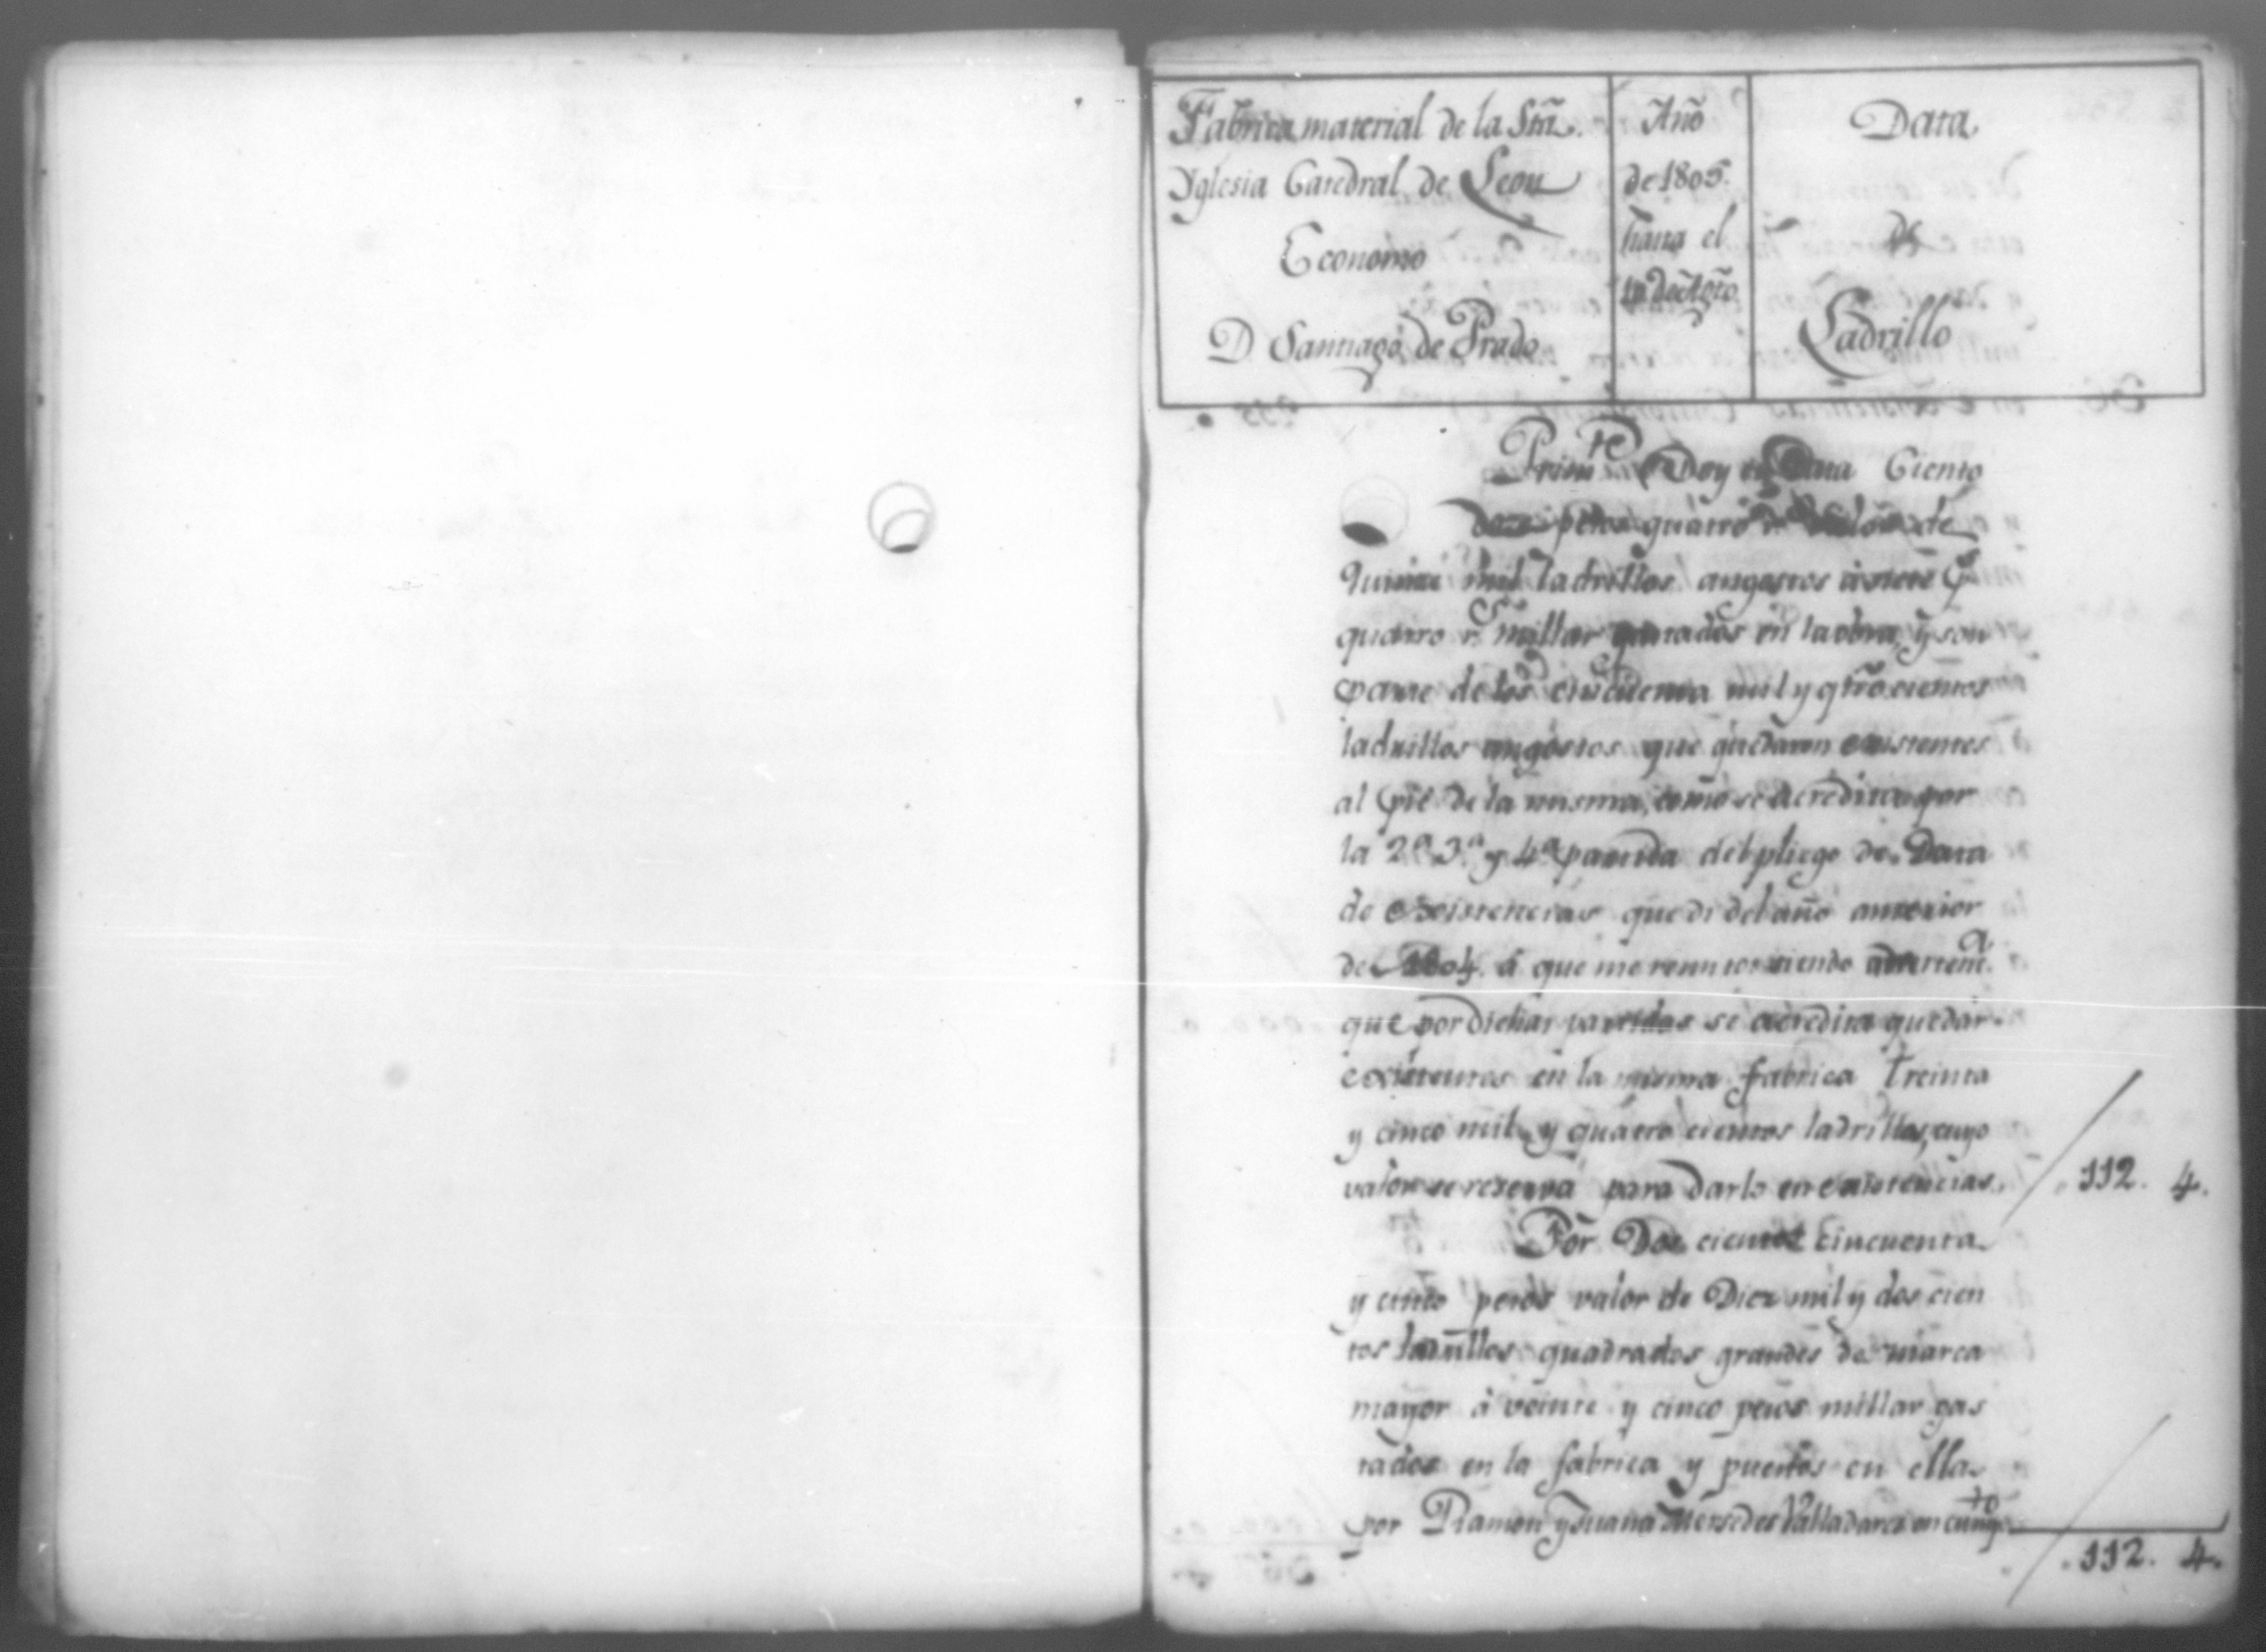 Fabrica material de la Sta.
Yglesia Catedral de Leon
Economo
D. Santiago de Prado
Año
de 1805.
hasta el
de Agto.
Data
de
Ladrillo
Prim.te Doy en Data Ciento
doze pesos quatro r.s valor de
quinze mil ladrillos angostos à siete p.s
quatro r.s millar gastados en la obra, y son
parte de los cincuenta mil y qtrocientos
ladrillos angostos que quedaron existentes
al pie de la misma, como se acredita por
la 2.a 3.a y 4.a partida del pliego de Data
de existencias que di del año anterior
de 1804. á que me remito siendo advertena.
que por dichas partidas se acredita quedar
existentes en la misma fabrica treinta
y cinco mil, y quatro cientos ladrillos, cuyo
valor se reserva para darlo en existencias. 112. 4.
Por Dos cientos cincuenta
y cinco pesos valor de Diez mil y dos cien
tos ladrillos quadrados grandes de marca
mayor à veinte y cinco pesos millar gas
tados en la fabrica y puestos en ella
por Ramon y Juana Mersedes Valladares en
112. 4.